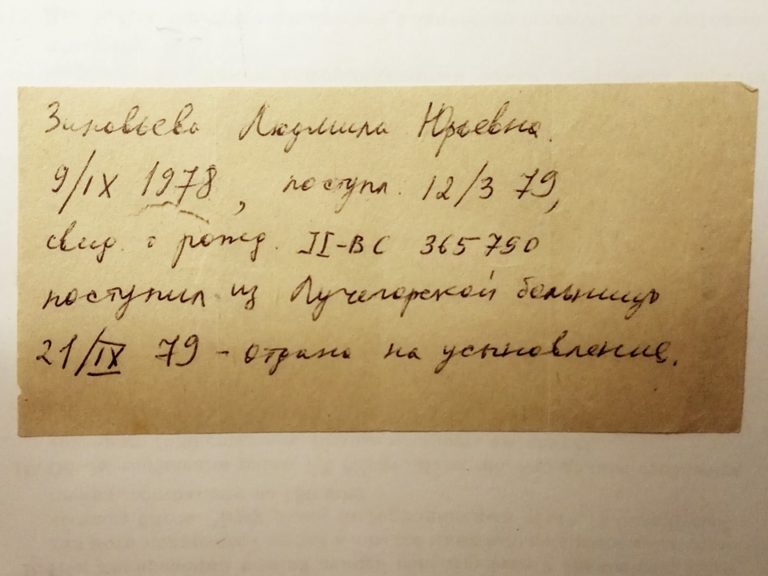 Зиновьева Людмила Юрьевна.
9/IX 1978, поступл. 12/3 79,
свид. о рожд. II-ВС 365790
поступил из Лучегорской больницы
21/IX 79 - отдана на усыновление.